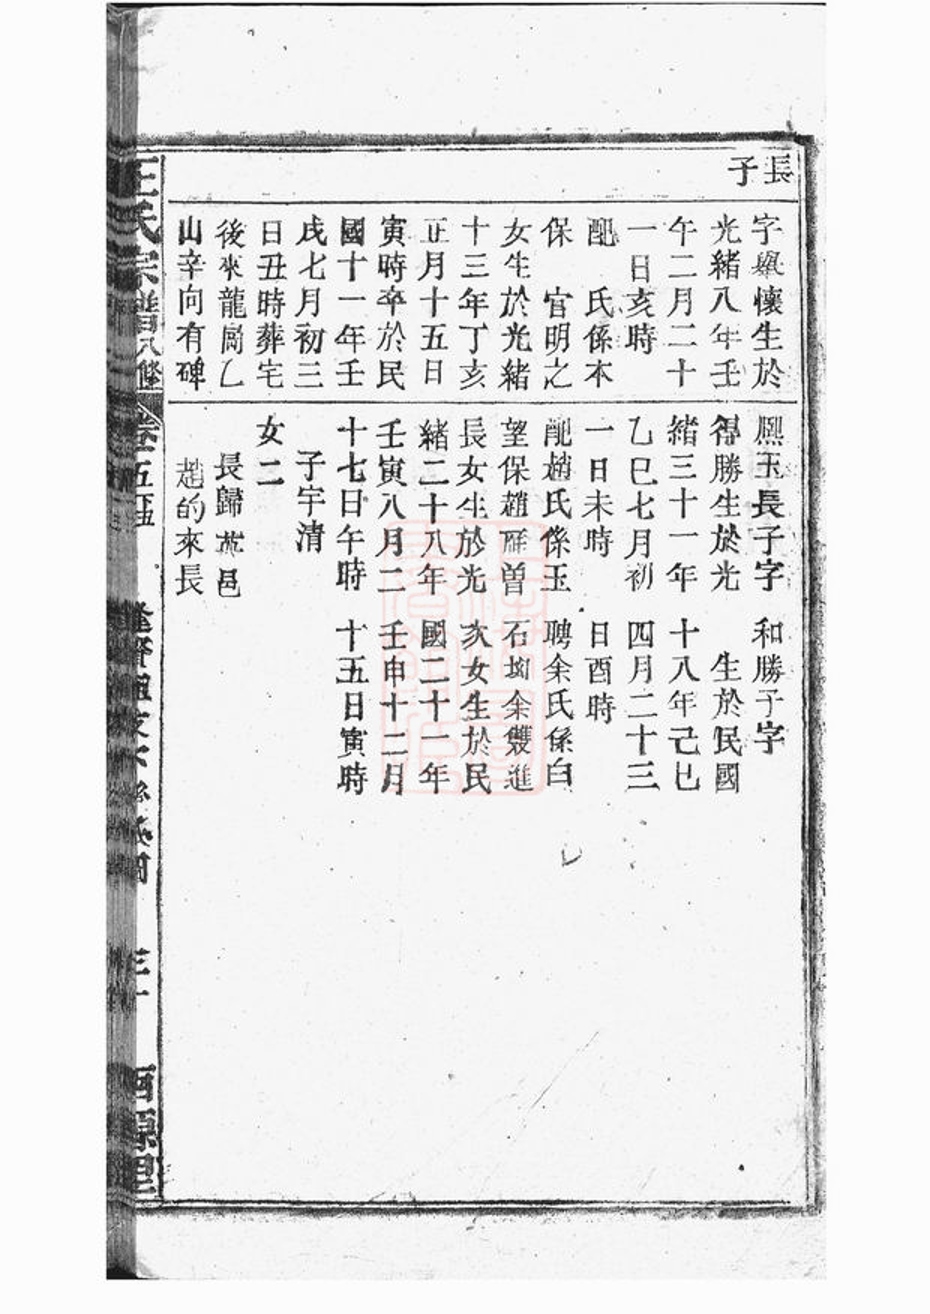 長
子
字舉懷生於
光緒八年壬
午二月二十
一日亥時
配　氏係本
保　官明之
女生於光緒
十三年丁亥
正月十五日
寅時卒於民
國十一年壬
戌七月初三
日丑時葬宅
後來龍崗乙
山辛向有碑
熈玉長子字
得勝生於光
緒三十一年
乙巳七月初
一日未時
配趙氏係玉
望保趙曽
長女生於光
緒二十八年
壬寅八月二
十七日午時
子宇清
女二
長歸英邑
趙的來長
和勝子字
生於民國
十八年己巳
四月二十三
日酉時
聘余氏係白
石坳余雙進
次女生於民
國二十一年
壬申十二月
十五日寅時
王氏宗譜八修
卷五
三十
西源里